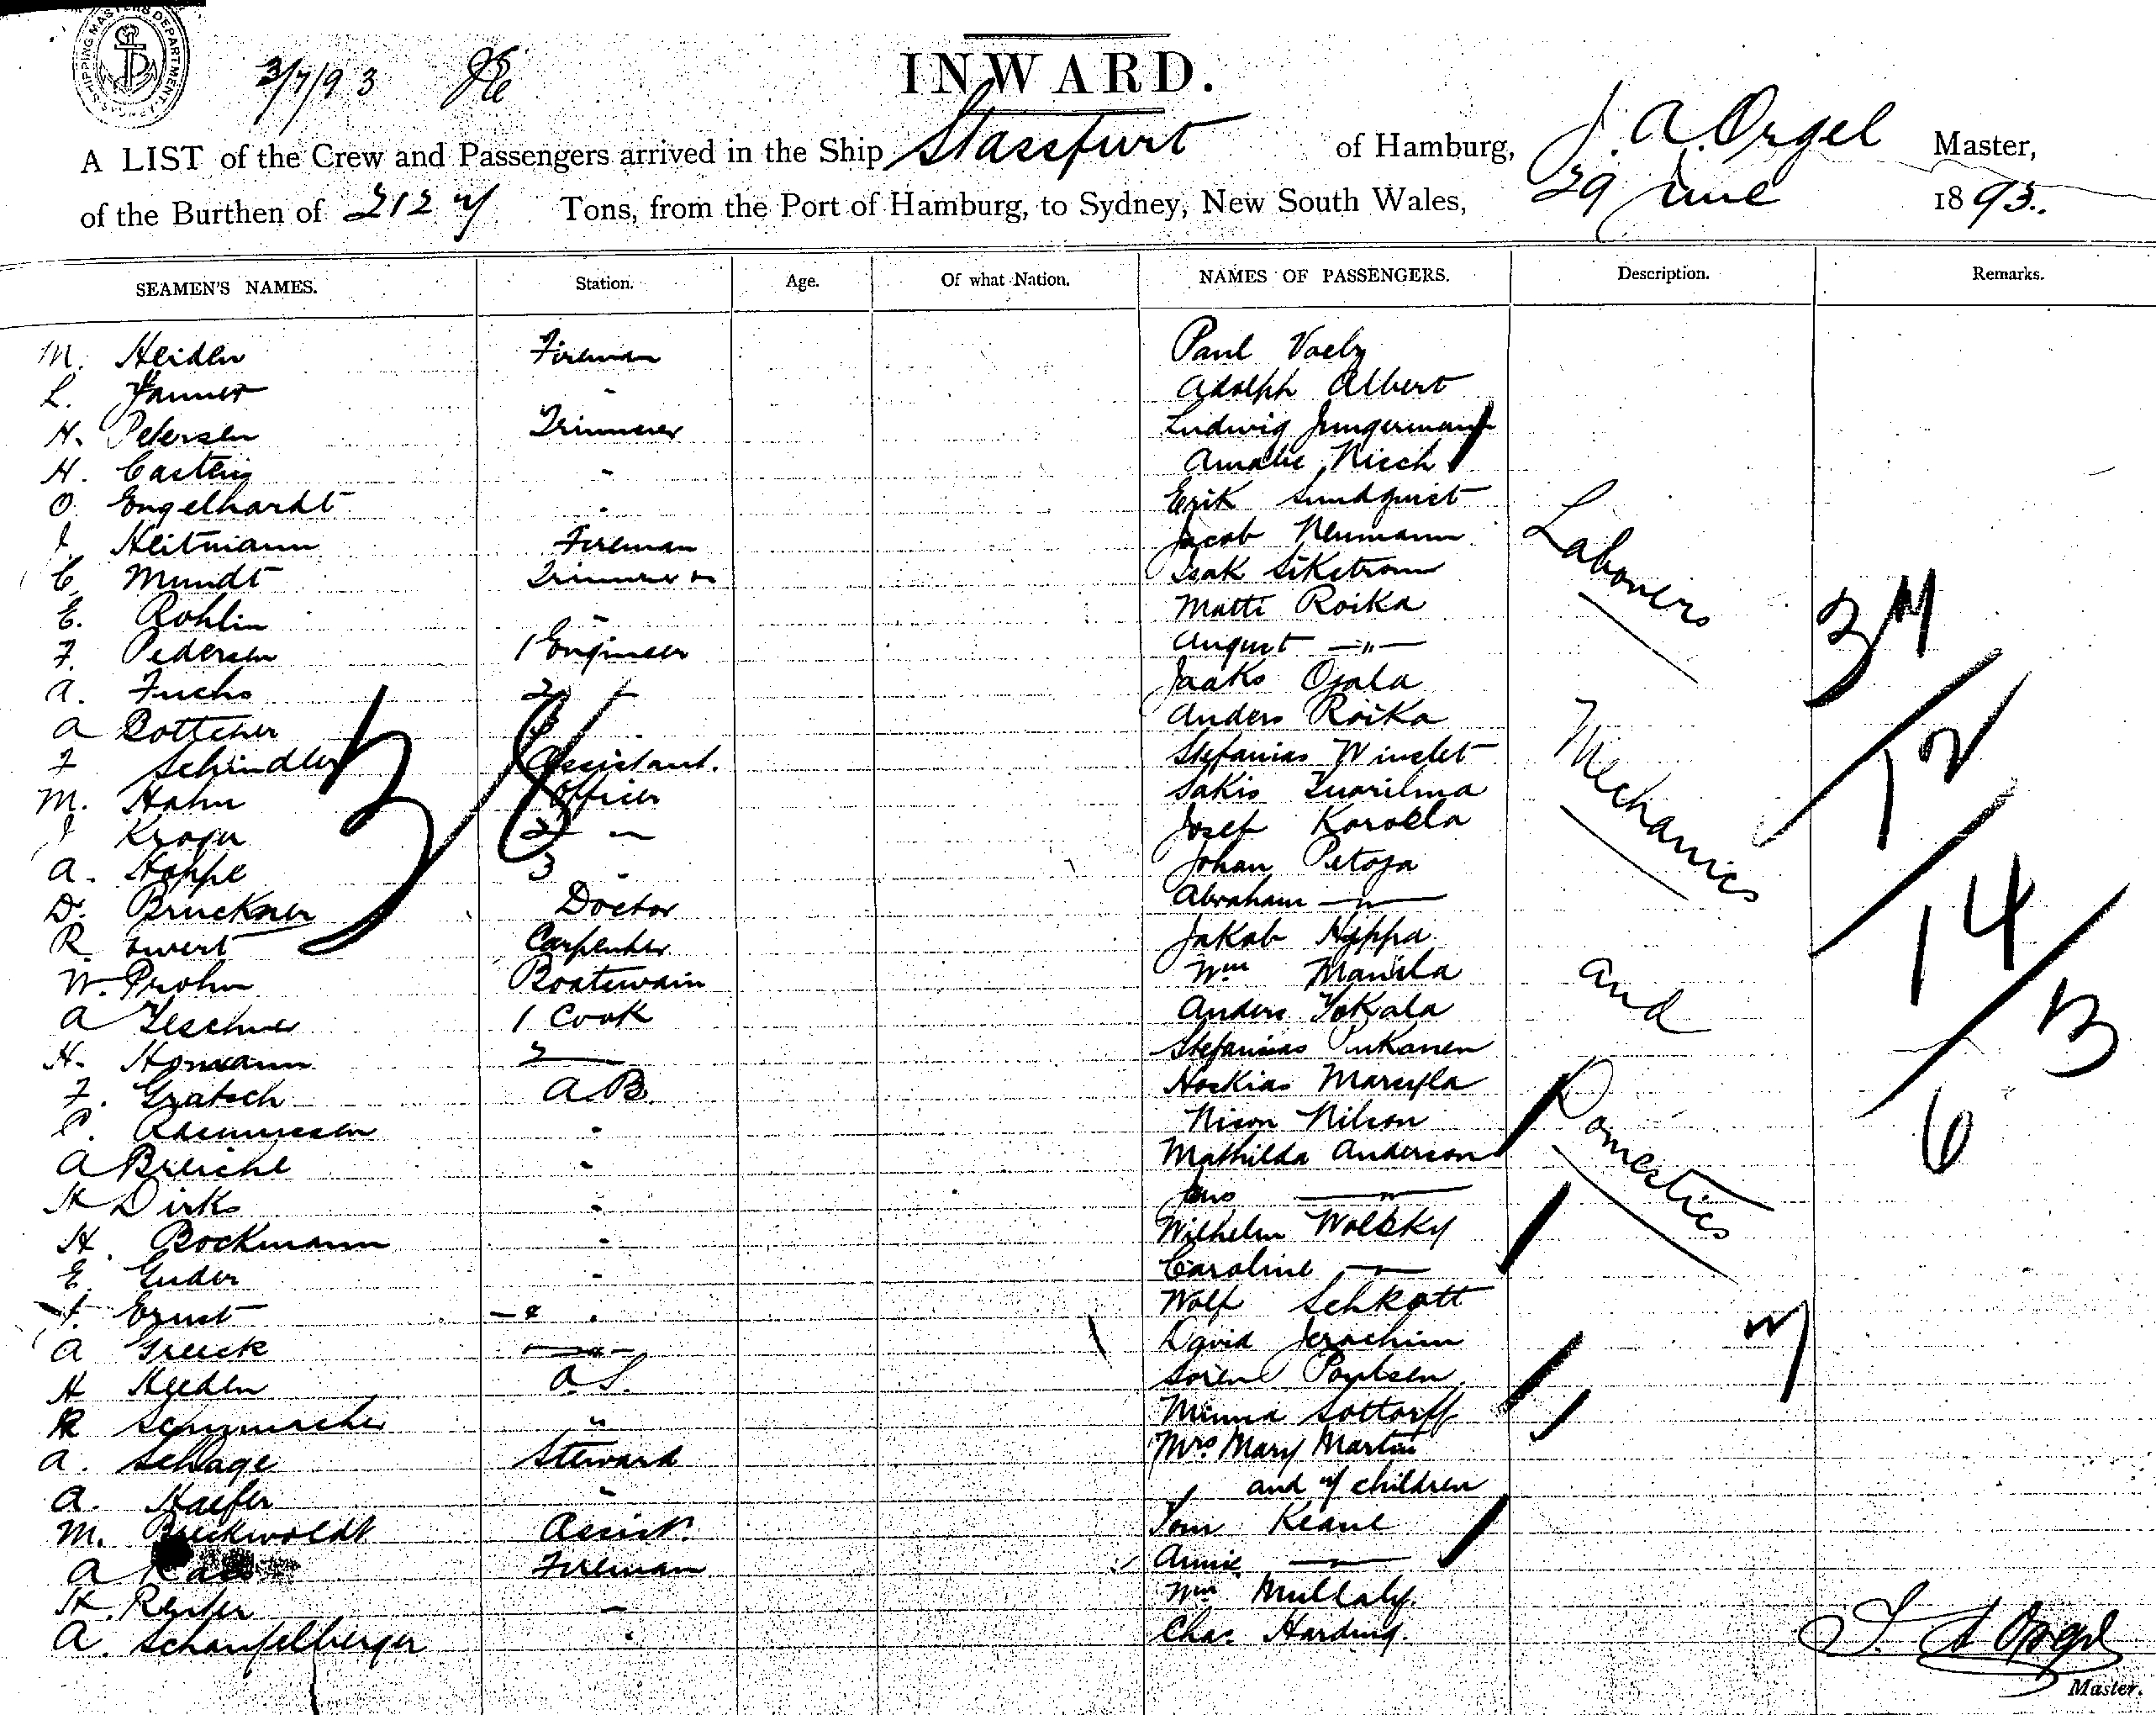 SHIPPING MASTERS DEPARTMENT
3/7/93
INWARD.
A LIST of the Crew and Passengers arrived in the Ship Stassfurt of Hamburg, J. A. Orgel Master,
of the Burthen of 212 Tons, from the Port of Hamburg, to Sydney, New South Wales, 29 June 1893.
SEAMEN'S NAMES. Station. Age. Of what Nation. NAMES OF PASSENGERS. Description. Remarks.
M. Heiden Fireman Paul Voelz
L. Adolph Albert
H. Petersen Trimmer Ludwig Jungermann
H. Casterig Amalie Nisch
O. Engelhardt Erik Sundquist
J. Heitmann Fireman Jacob Neumann
C. Mundt Trimmer Isak Sikstrom
E. Rohlin Matti Roika
F. Pedersen 1 Engineer August —"—
A. Fuchs 2 Jaako Ojala
A Bottcher Anders Roika
F Schindler Assistant. Stefanias
M. Hahn 1 Officer Sakis
J Kroger 2 Josef Korolla
A. Hoppe 3 Johan Petoja
D. Bruckner Doctor Abraham —"—
R. Ewert Carpenter Jakob Hippa
W. Prohn Boatswain Wm Manila
A Teschner 1 Cook Anders Yokala
H. Homann 2 Stefanias Pinkanen
F. Gratsch A.B.
P. Rasmussen Nison Nilson
A Mathilda Anderson
H Dirks Jens —"—
H. Bockmann Wilhelm Wolsky
E. Guder Caroline —"—
Ernst Wolf Schkott
A David Jerachim
H Heeden O.S. Soren Poulsen
R Schumacher " Minna Sottorff
A. Schage Steward Mrs Mary Martin
A. Kaefer and 4 children
M. Breckwoldt Assist. Tom Keane
A Fireman Annie —"—
H. Reuter Wm Mullaly.
A. Schaufelberger Chas. Harding.
Labourers
Mechanics
and
Domestics
34
12
14
13
6
J. A Orgel
Master.